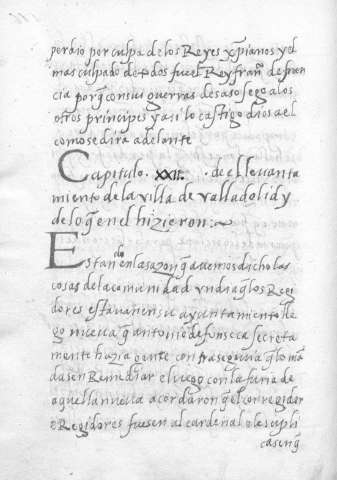 perdio por culpa de los Reyes xp̃ianos y el
mas culpado de todos fue el Rey fran.º de fran
cia porq̃ con sus guerras desasosego a los
otros principes y asi lo castigo dios a el
como se dira adelante
Capitulo .XXII. de el levanta
miento de la villa de valladolid y
de lo q̃ en el hizieron :~
Estando en la sazon q̃ avemos dicho las
cosas de la comunidad un dia q̃ los Regi
dores estavan en su ayuntamiento lle
go nueva q̃ antonio de fonseca secreta
mente hazia gente con
da sen Remediar el
aquella nueva acordaron q̃ el corregidor
e Regidores fuesen al cardenal e le supli
casen q̃